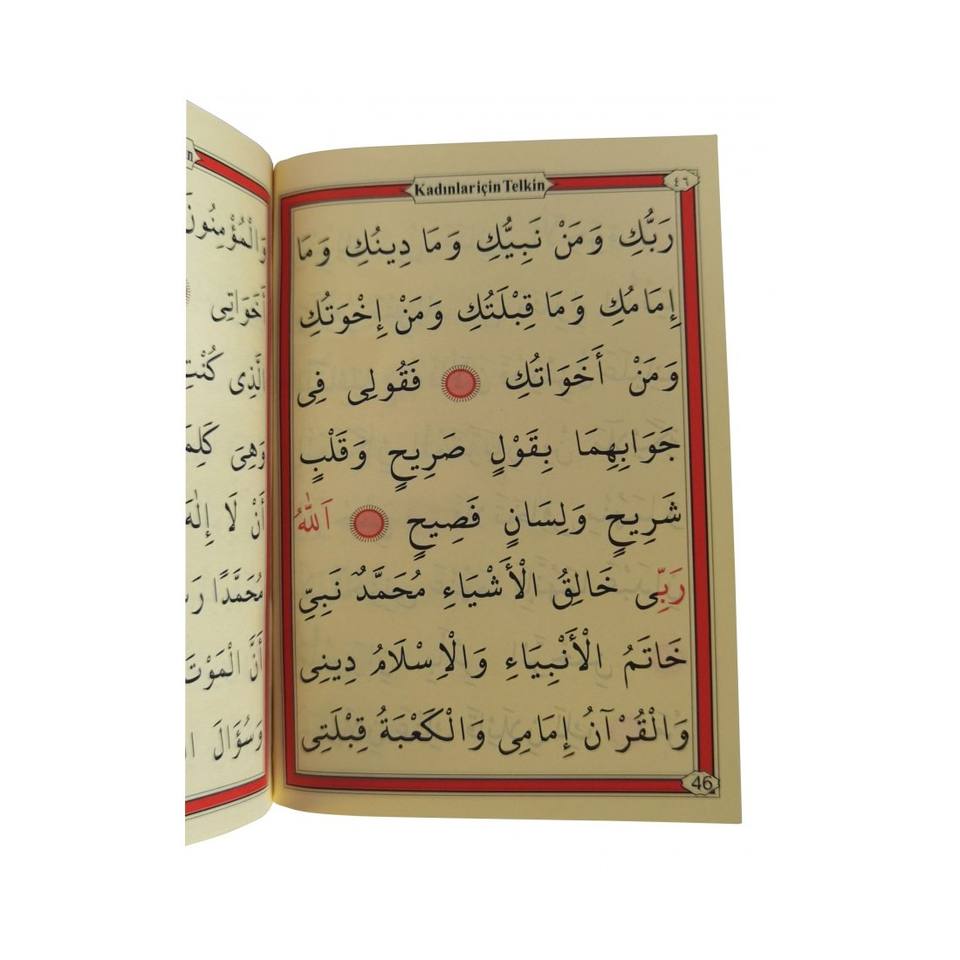 Kadınlar için Telkin
٤٦
رَبُّكِ وَمَنْ نَبِيُّكِ وَمَا دِينُكِ وَمَا
إِمَامُكِ وَمَا قِبْلَتُكِ وَمَنْ إِخْوَتُكِ
وَمَنْ أَخَوَاتُكِ فَقُولِى فِى
جَوَابِهِمَا بِقَوْلٍ صَرِيحٍ وَقَلْبٍ
شَرِيحٍ وَلِسَانٍ فَصِيحٍ اَللّٰهُ
رَبِّى خَالِقُ الْأَشْيَاءِ مُحَمَّدٌ نَبِىِّ
خَاتَمُ الْأَنْبِيَاءِ وَالْاِسْلَامُ دِينِى
وَالْقُرْآنُ إِمَامِى وَالْكَعْبَةُ قِبْلَتِى
46
وَالْمُؤْمِنُونَ
أَخَوَاتِى
الَّذِى كُنْتِ
وَهِىَ
أَنْ لَا إِلٰهَ
مُحَمَّدًا
أَنَّ الْمَوْتَ
وَسُؤَالَ